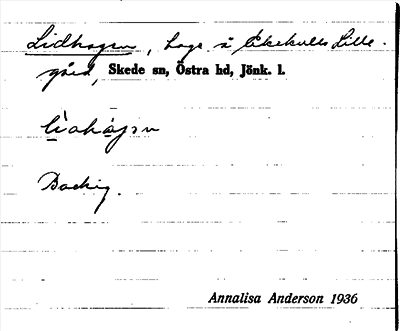 Lidhagen, hage å Ekekulls Lille-
gård, Skede sn, Östra hd, Jönk. l.
Backig.
Annalisa Anderson 1936